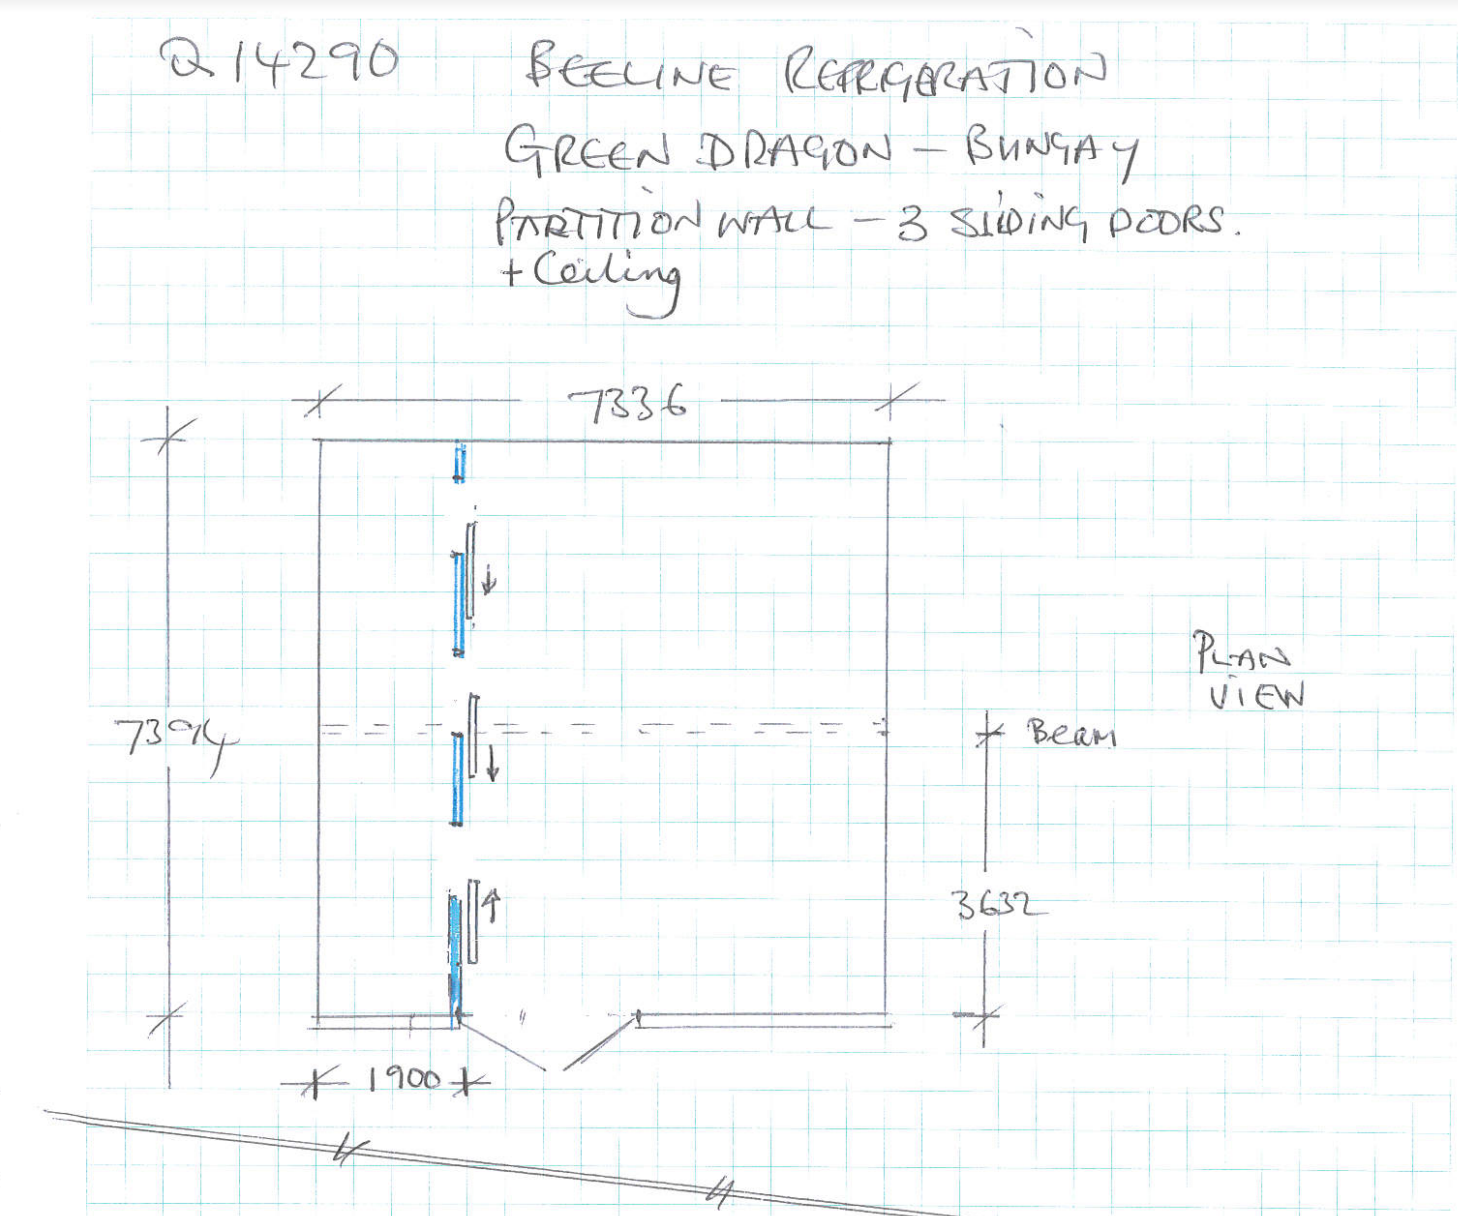 Q 14290
BEELINE REFRIGERATION
GREEN DRAGON - BUNGAY
PARTITION WALL - 3 SLIDING DOORS.
+ Ceiling
7336
PLAN
VIEW
7394
Beam
3632
1900